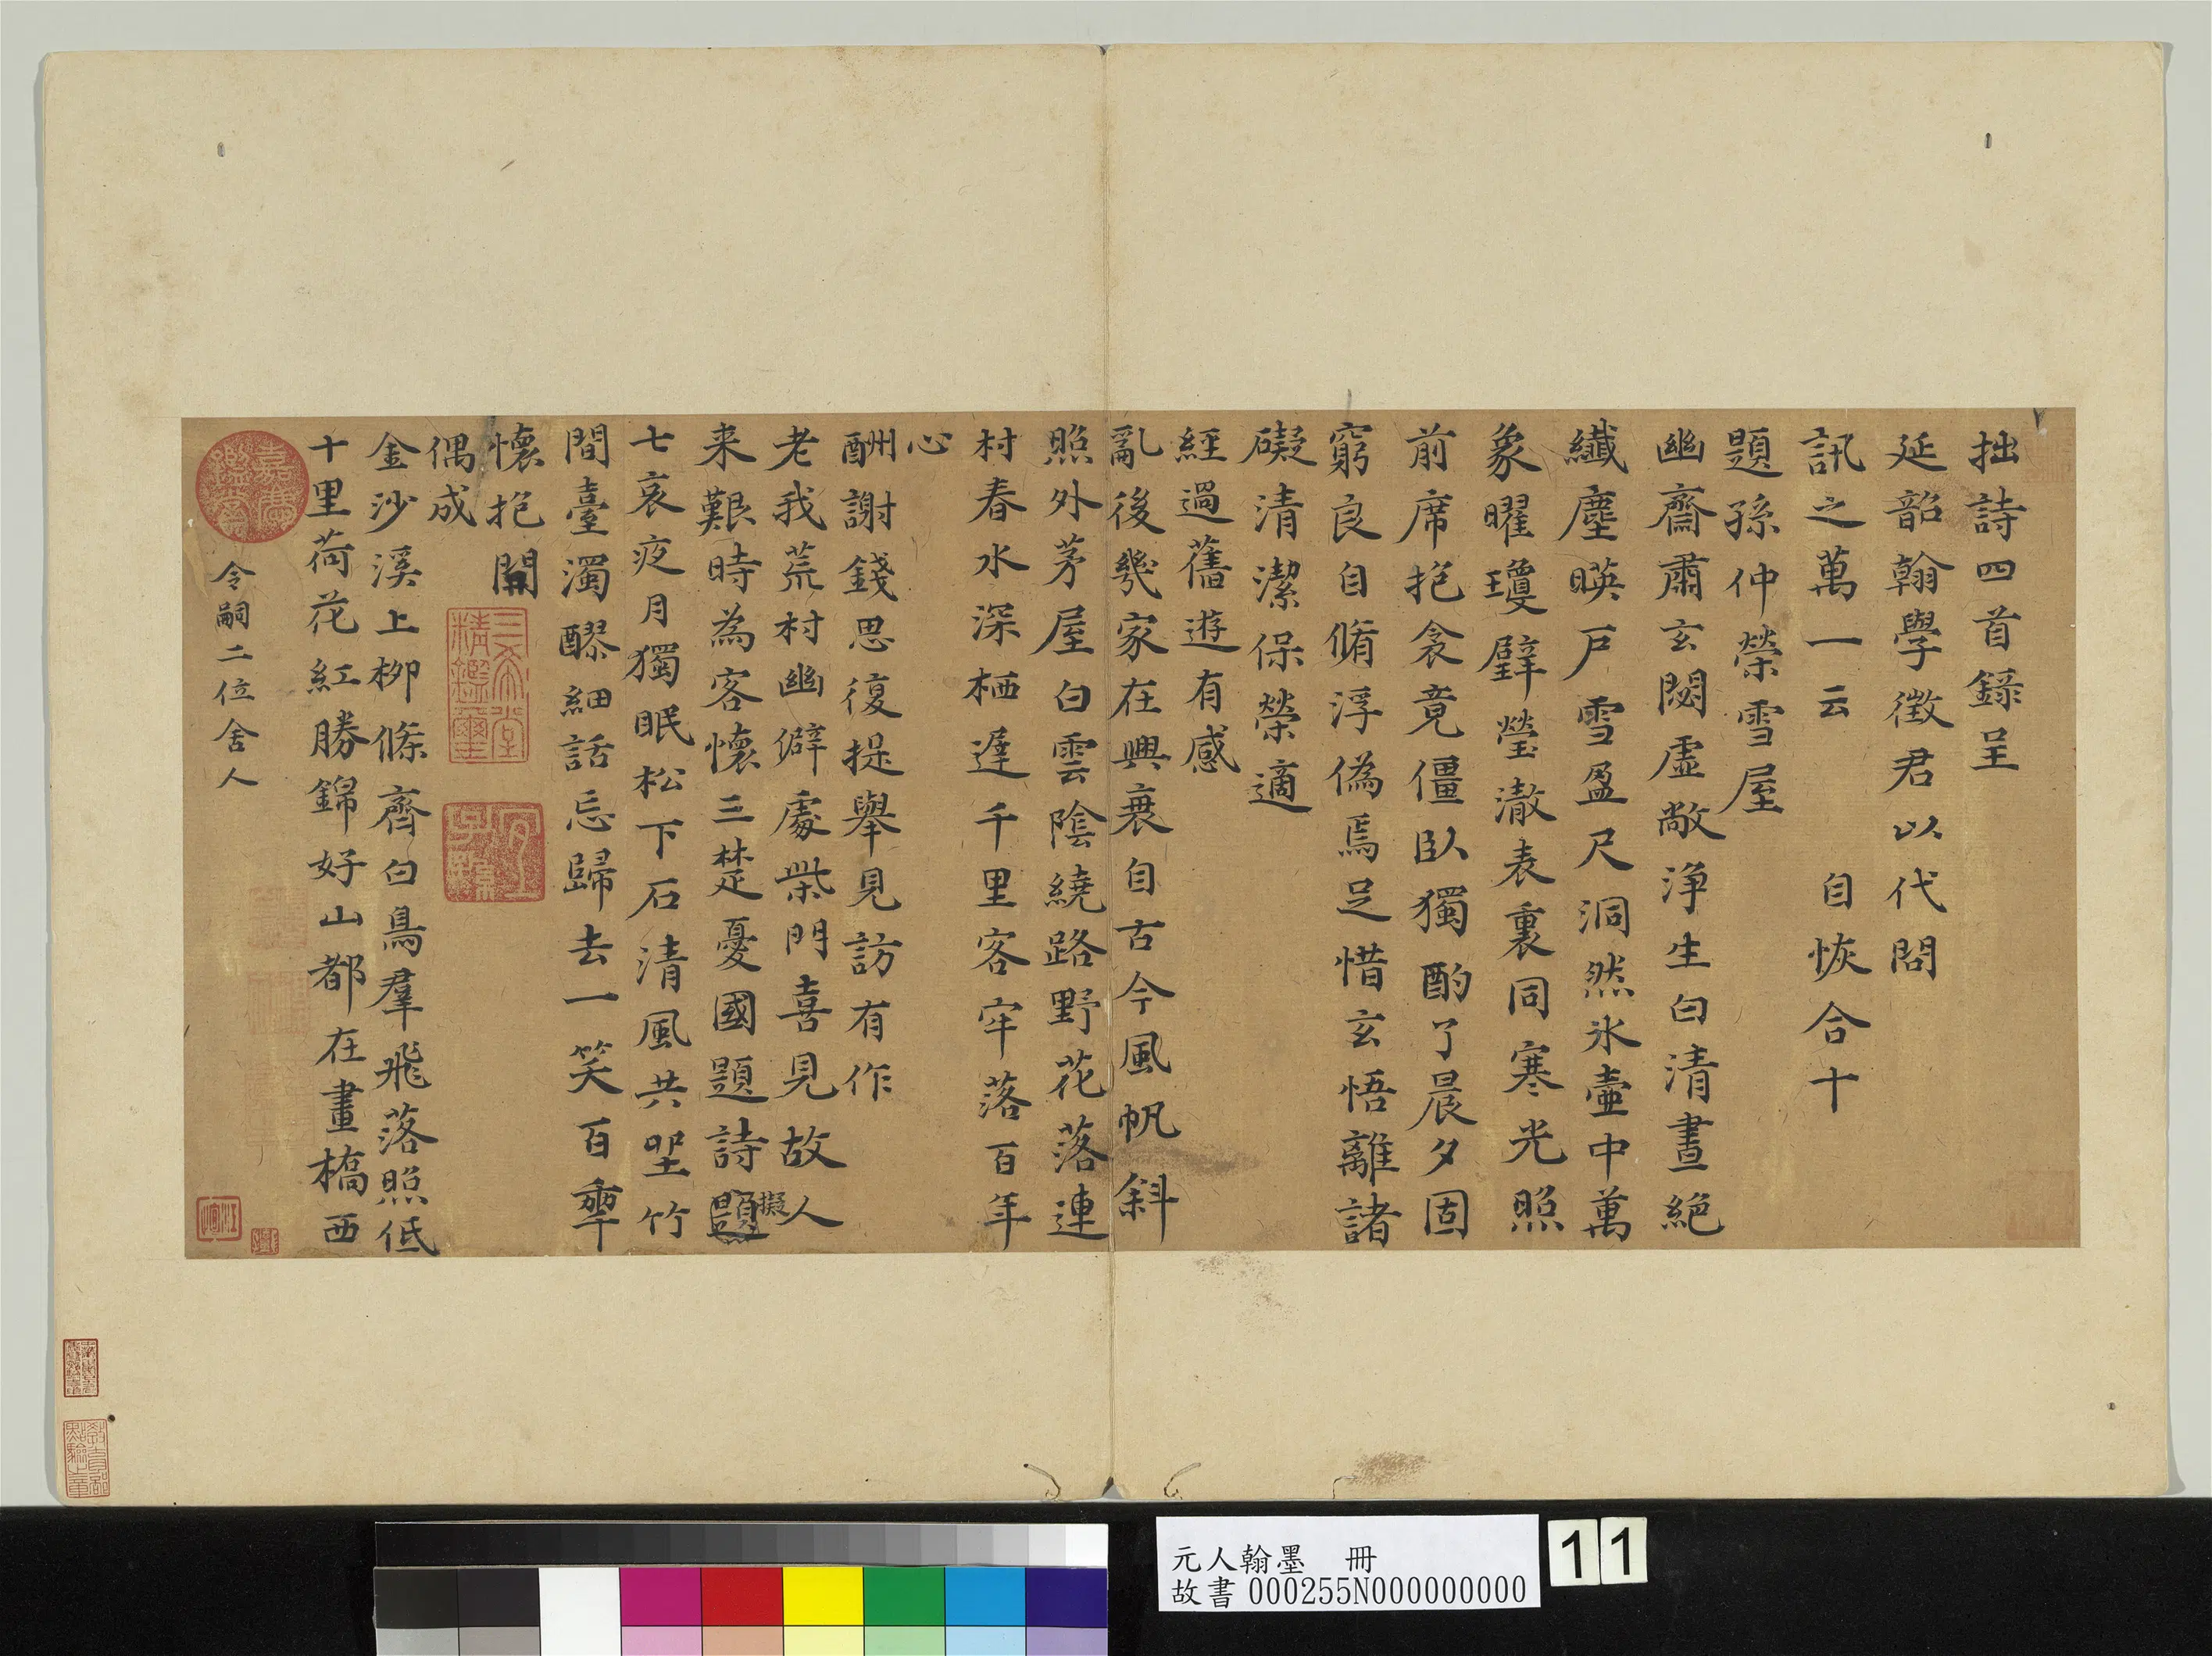 拙詩四首録呈
延韶翰學徵君以代問
訊之萬一云　自恢合十
題孫仲榮雪屋
幽齋肅玄閟虛敞浄生白清晝絕
纖塵暎戶雪盈尺洞然氷壷中萬
象曜瓊璧瑩澈表裏同寒光照
前席抱衾竟僵臥獨酌了晨夕固
窮良自脩浮偽焉足惜玄悟離諸
礙清潔保榮適
經過舊遊有感
亂後幾家在興衰自古今風帆斜
照外茅屋白雲陰繞路野花落連
村春水深栖遅千里客牢落百年
心
酬謝錢思復提舉見訪有作
老我荒村幽僻處柴門喜見故人
来艱時為客懷三楚憂國題詩題擬
七哀夜月獨眠松下石清風共坐竹
間臺濁醪細話忘歸去一笑百
懷抱開
偶成
金沙溪上栁條齊白鳥羣飛落照低
十里荷花紅勝錦好山都在畫橋西
令嗣二位舍人
嘉慶鑑賞
三希堂精鑑璽
宜子孫
元人翰墨　冊
故書000255N000000000
11